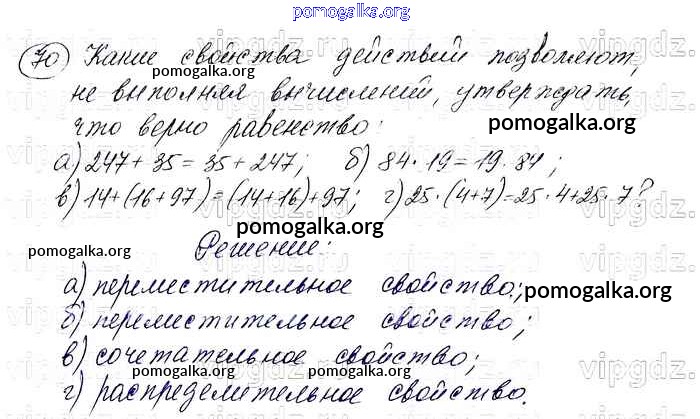 pomogalka.org
70 Какие свойства действий позволяют,
не выполняя вычислений, утверждать,
что верно равенство:
а) 247 + 35 = 35 + 247; б) 84 · 19 = 19 · 84;
в) 14 + (16 + 97) = (14 + 16) + 97; г) 25 · (4 + 7) = 25 · 4 + 25 · 7?
Решение:
а) переместительное свойство;
б) переместительное свойство;
в) сочетательное свойство;
г) распределительное свойство.
pomogalka.org
pomogalka.org
pomogalka.org
pomogalka.org
pomogalka.org
vipgdz.
vipgdz.
vipgdz.
vipgdz.